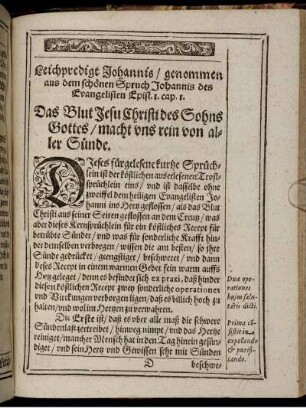 Leichpredigt Johannis / genommen
aus dem schönen Spruch Johannis des
Evangelisten Epist. 1. cap. 1.
Das Blut Jesu Christi des Sohns
Gottes / macht vns rein von al-
ler Sünde.
DJeses fürgelesene kurtze Sprüch-
lein ist der köstlichen auserlesenen Trost-
sprüchlein eins / vnd ist dasselbe ohne
zweiffel dem heiligen Evangelisten Jo-
hanni ins Hertz geflossen / als das Blut
Christi aus seiner Seiten geflossen an dem Creutz / was
aber dieses Kernsprüchlein für ein köstliches Recept für
betrübte Sünder / vnd was für sonderliche Krafft hin-
der demselben verborgen / wissen die am besten / so ihre
Sünde gedrücket / geengstiget / beschweret / vnd dann
dieses Recept in einem warmen Gebet fein warm auffs
Hertz geleget / denn es befindet sich ex praxi, daß hinder
diesem köstlichen Recept zwey sonderliche operationes
vnd Wirckungen verborgen ligen / daß es billich hoch zu
halten / vnd wol im Hertzen zu verwahren.
Die Erste ist / daß es vber alle maß die schwere
Sündenlast zertreibet / hinweg nimpt / vnd das Hertze
reiniget / mancher Mensch hat in den Tag hinein gesün-
diget / vnd sein Hertz vnd Gewissen sehr mit Sünden
D
beschwe-
Duæ ope-
rationes
hujus salu-
taris dicti.
Prima co-
sistit in
expellendo
& purifi-
cando.